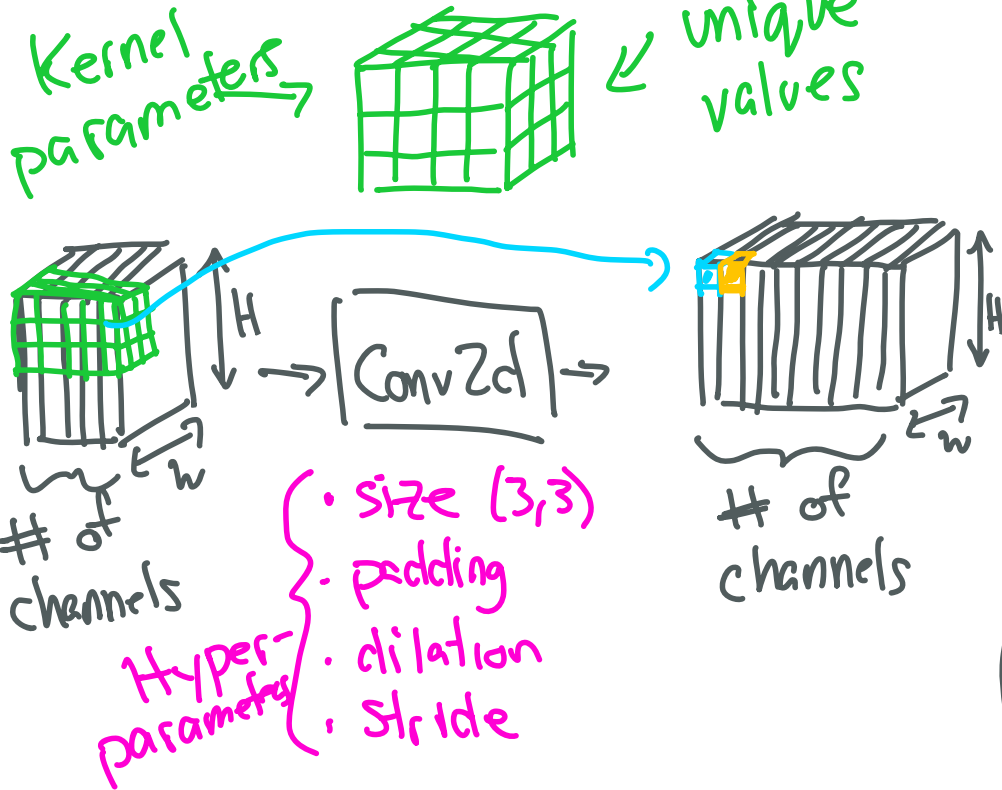 Kernel
parameters
unique
values
H
w
# of
channels
Conv2d
H
w
# of
channels
Hyper-
parameters
· size (3,3)
· padding
· dilation
· stride